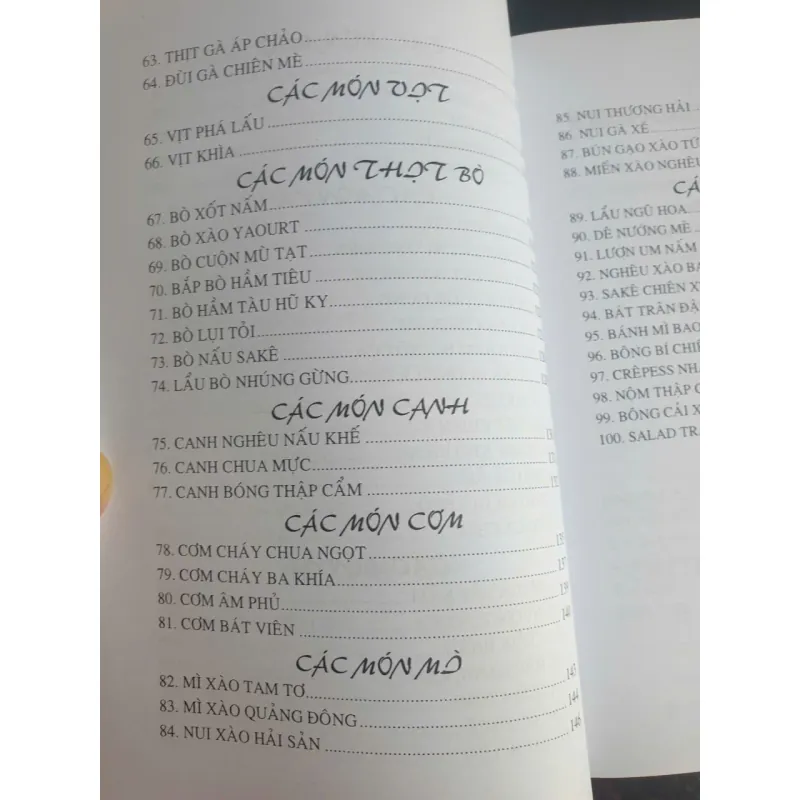 63. THỊT GÀ ÁP CHẢO
64. ĐÙI GÀ CHIÊN MÈ
CÁC MÓN VỊT
65. VỊT PHÁ LẤU
66. VỊT KHÌA
CÁC MÓN THỊT BÒ
67. BÒ XỐT NẤM
68. BÒ XÀO YAOURT
69. BÒ CUỘN MÙ TẠT
70. BẮP BÒ HẦM TIÊU
71. BÒ HẦM TÀU HŨ KY
72. BÒ LỤI TỎI
73. BÒ NẤU SAKÊ
74. LẨU BÒ NHÚNG GỪNG
CÁC MÓN CANH
75. CANH NGHÊU NẤU KHẾ
76. CANH CHUA MỰC
77. CANH BÓNG THẬP CẨM
CÁC MÓN CƠM
78. CƠM CHÁY CHUA NGỌT
79. CƠM CHÁY BA KHÍA 137
80. CƠM ÂM PHỦ 139
81. CƠM BÁT VIÊN 141
CÁC MÓN MÌ
82. MÌ XÀO TAM TƠ 143
83. MÌ XÀO QUẢNG ĐÔNG 144
84. NUI XÀO HẢI SẢN 146
85. NUI THƯỢNG HẢI
86 NUI GÀ XÉ
87. BÚN GẠO XÀO TỨ
88. MIẾN XÀO NGHÊU
CÁ
89. LẨU NGŨ HOA
90. DÊ NƯỚNG MÈ
91. LƯƠN UM NẤM
92. NGHÊU XÀO BA
93. SAKÊ CHIÊN X
94. BÁT TRÂN ĐẬ
95. BÁNH MÌ BAO
96. BÔNG BÍ CHIÊ
97. CRÊPESS NHA
98. NỘM THẬP C
99. BÔNG CẢI X
100. SALAD TRA